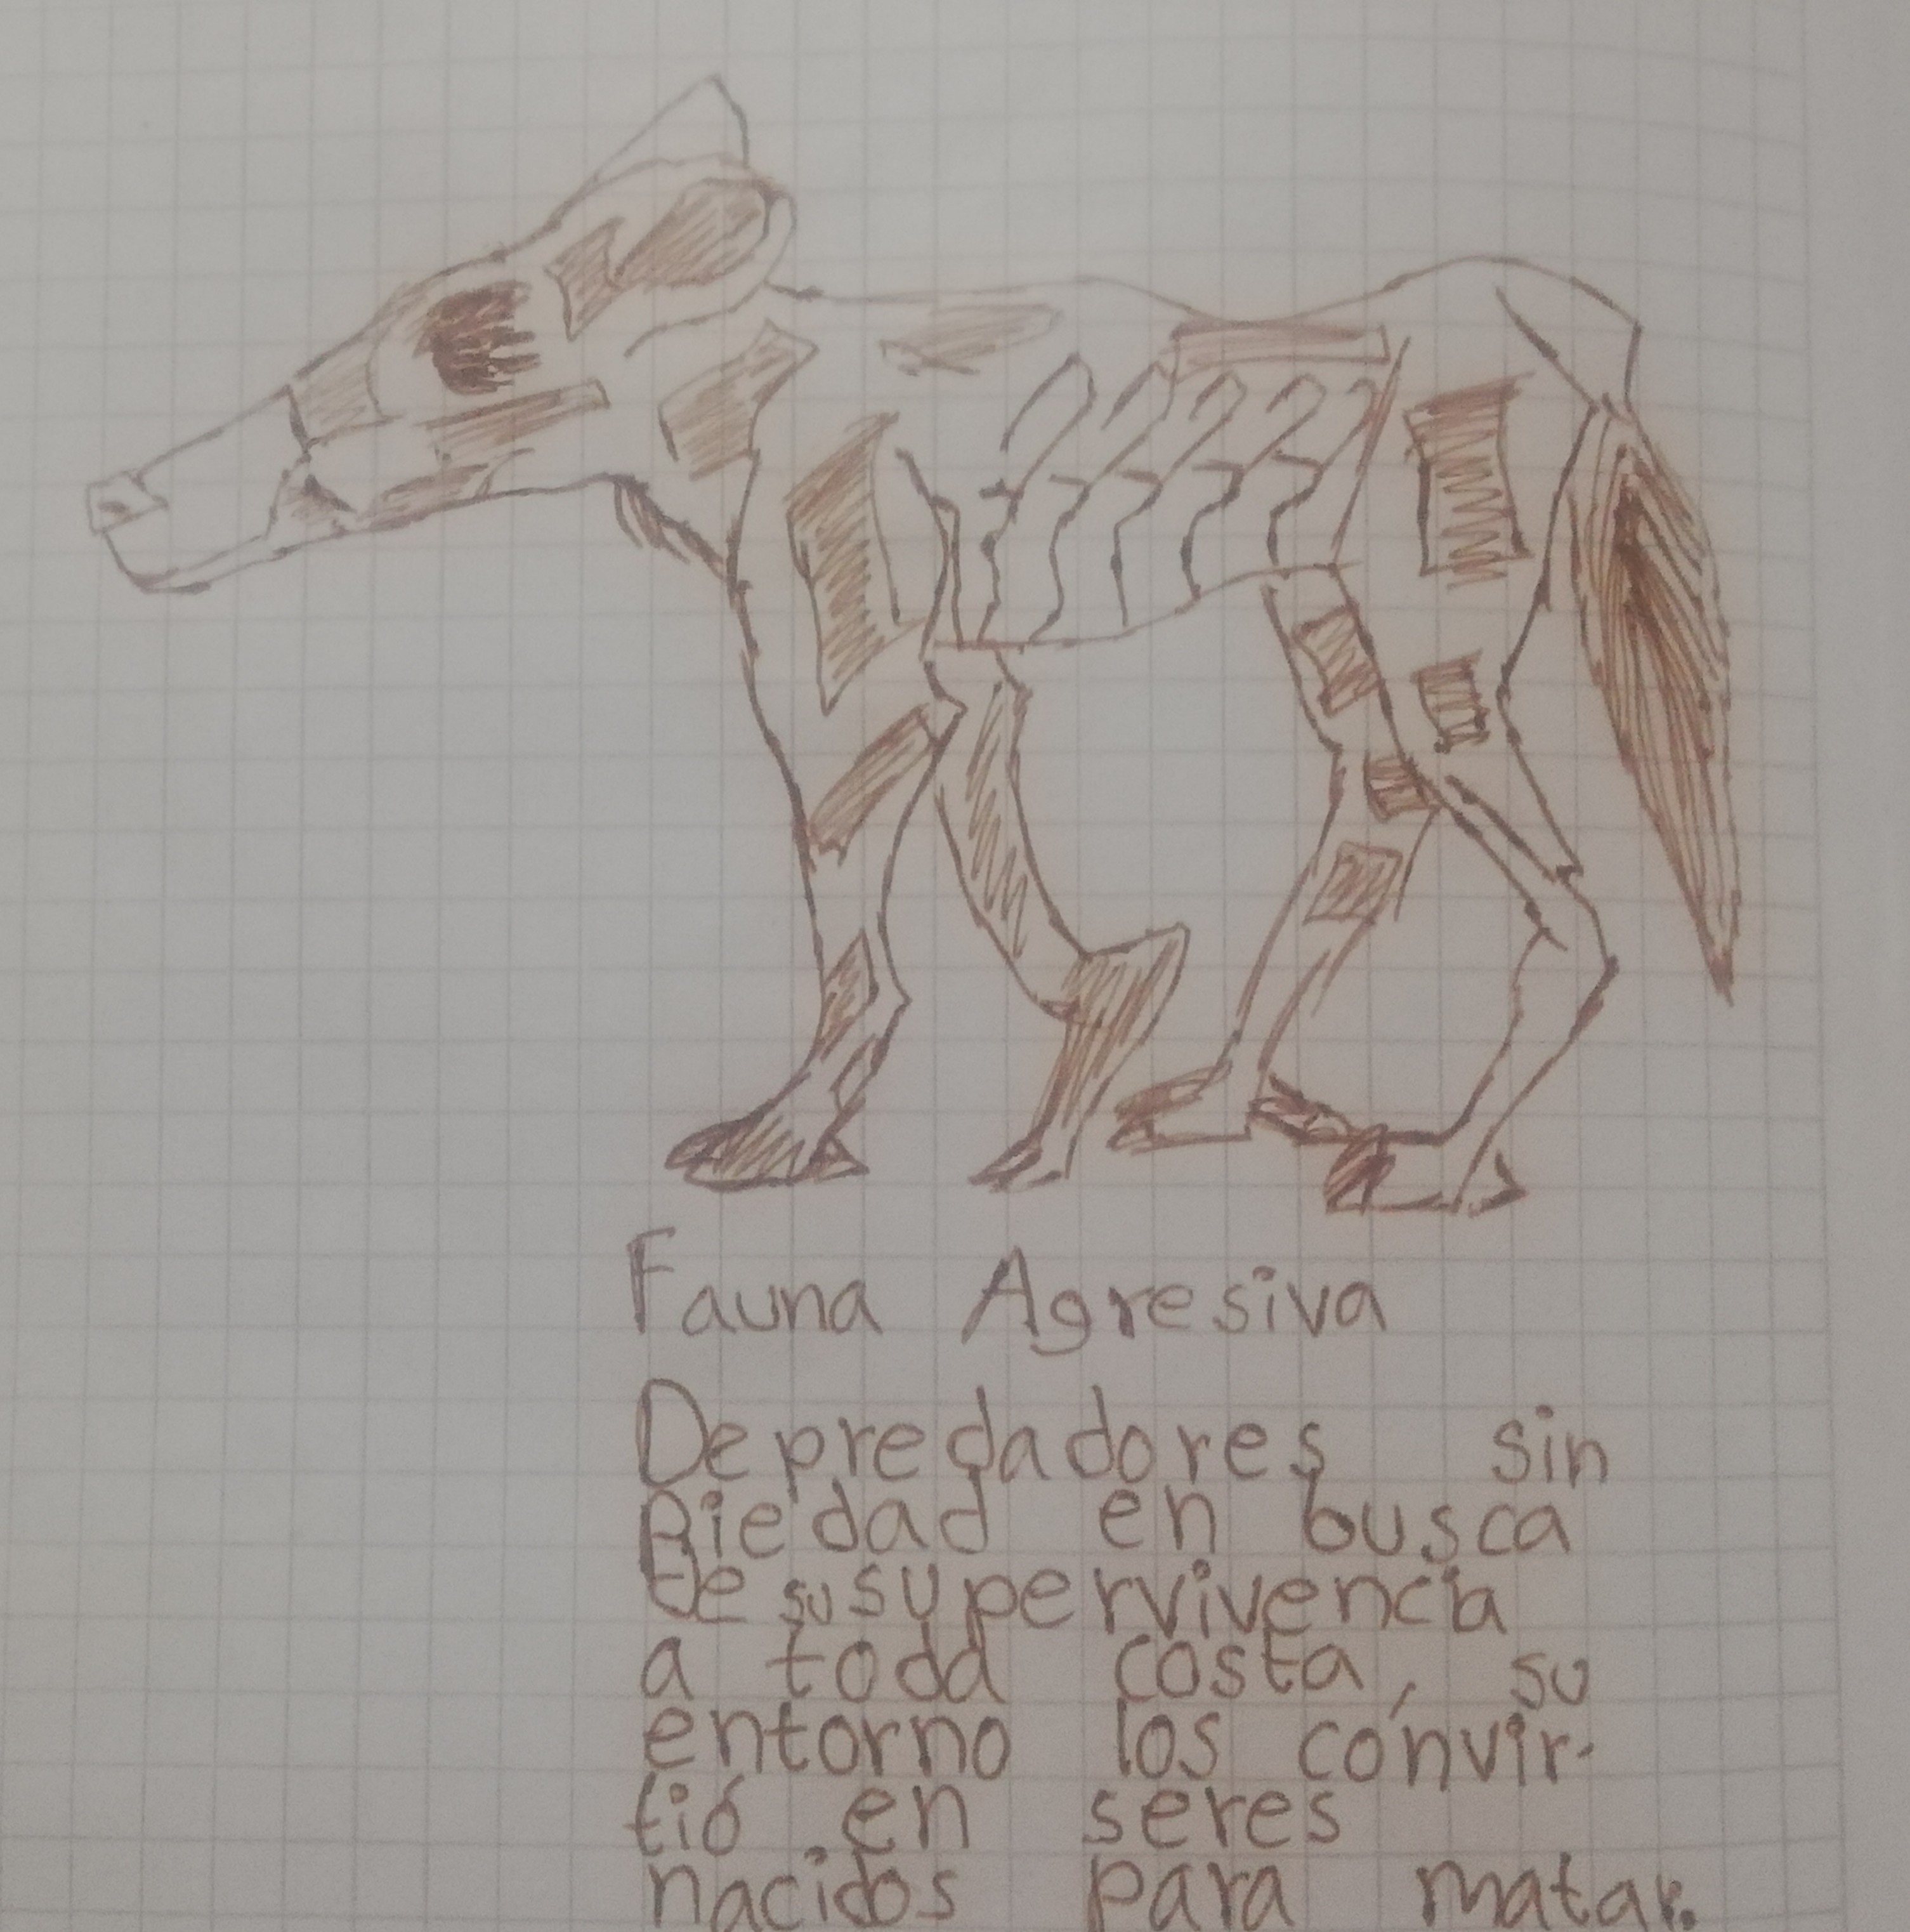 Fauna Agresiva
Depredadores sin
piedad en busca
de su supervivencia
a toda costa, su
entorno los convir-
tió en seres
nacidos para matar.